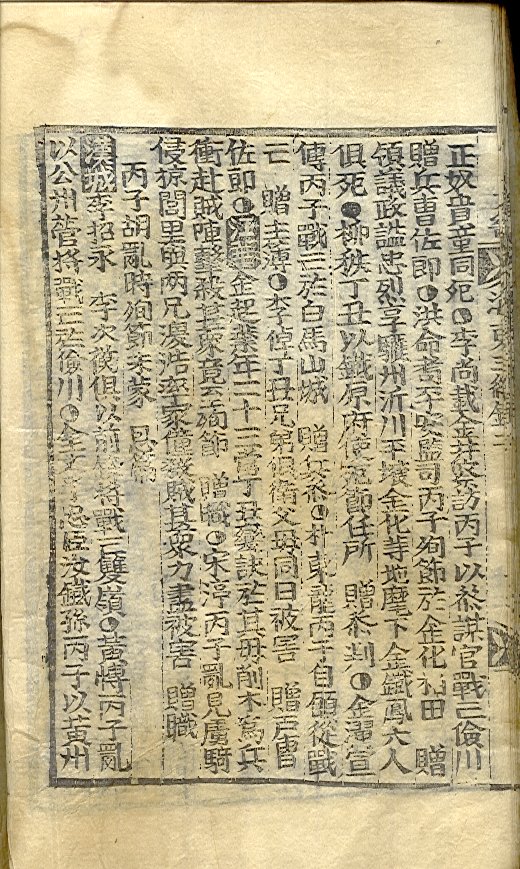 正奴音童同死 李尚載金井察訪丙子以叅謀官戰亡險川
贈兵曹佐郎 洪命耈平安監司丙子殉節於金化栢田 贈
領議政謚忠烈享驪州沂川平壤金化等地麾下金鐵鳳六人
俱死 柳秩丁丑以鐵原府使死節任所 贈叅判 金 宣
傳丙子戰亡於白馬山城 贈兵叅 朴東龍丙子自願從戰
亡 贈主簿 李 丁丑兄弟俱衛父母同日被害 贈戶曹
佐郎 金起 年二十三 丁丑 訣於其母削木爲兵
衝赴賊陣擊殺甚衆竟至殉節 贈職 宋淳丙子亂見虜騎
侵掠閭里與兩兄 浩 家僮 賊甚衆力盡被害 贈職
丙子胡亂時殉節未蒙 恩 
漢城 李招永 李次 俱以 將戰亡雙嶺 黃 丙子亂
以公州營將戰亡於險川 金 忠臣汝鐵孫丙子以黃州